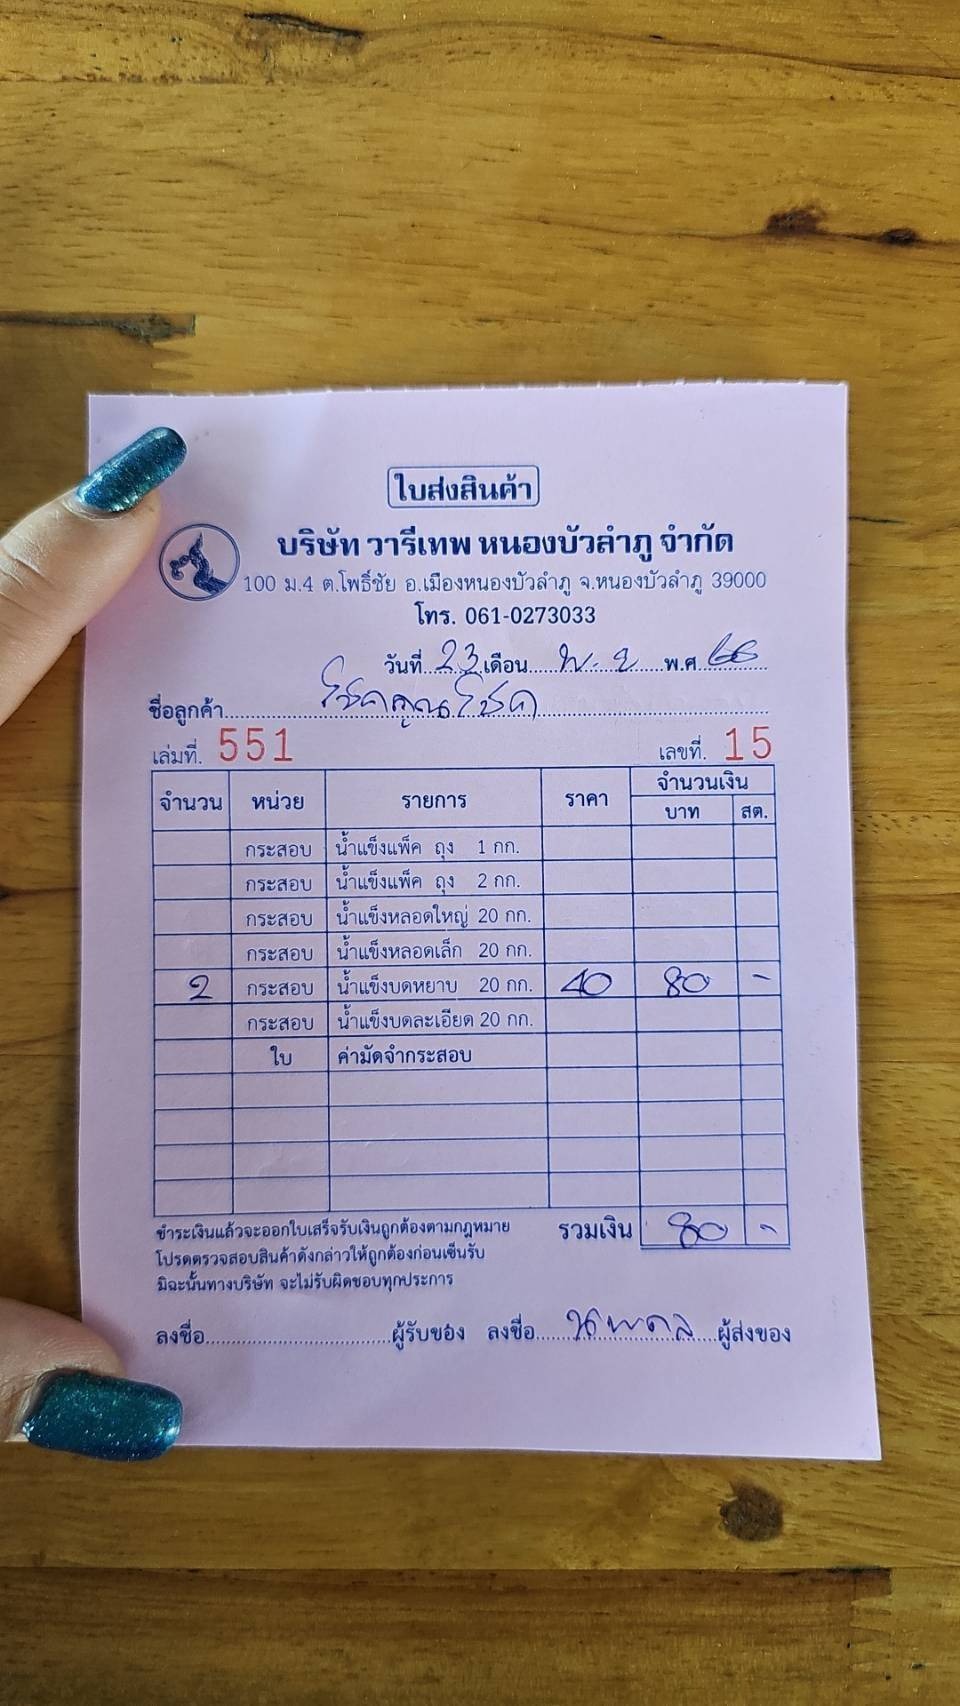 ใบส่งสินค้า
บริษัท วารีเทพ หนองบัวลำภู จำกัด
100 ม.4 ต.โพธิ์ชัย อ.เมืองหนองบัวลำภู จ.หนองบัวลำภู 39000
โทร. 061-0273033
วันที่ 23 เดือน พ.ย พ.ศ 66
ชื่อลูกค้า โชคคูณโชค
เล่มที่. 551 เลขที่. 15
จำนวน หน่วย รายการ ราคา จำนวนเงิน
บาท สต.
กระสอบ น้ำแข็งแพ็ค ถุง 1 กก.
กระสอบ น้ำแข็งแพ็ค ถุง 2 กก.
กระสอบ น้ำแข็งหลอดใหญ่ 20 กก.
กระสอบ น้ำแข็งหลอดเล็ก 20 กก.
2 กระสอบ น้ำแข็งบดหยาบ 20 กก. 40 80 -
กระสอบ น้ำแข็งบดละเอียด 20 กก.
ใบ ค่ามัดจำกระสอบ
ชำระเงินแล้วจะออกใบเสร็จรับเงินถูกต้องตามกฎหมาย รวมเงิน 80 -
โปรดตรวจสอบสินค้าดังกล่าวให้ถูกต้องก่อนเซ็นรับ
มิฉะนั้นทางบริษัท จะไม่รับผิดชอบทุกประการ
ลงชื่อ ผู้รับของ ลงชื่อ นพดล ผู้ส่งของ